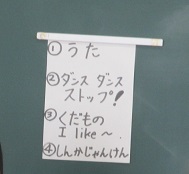 ① うた
② ダンス ダンス
ストップ!
③ くだもの
I like～.
④ しんかじゃんけん